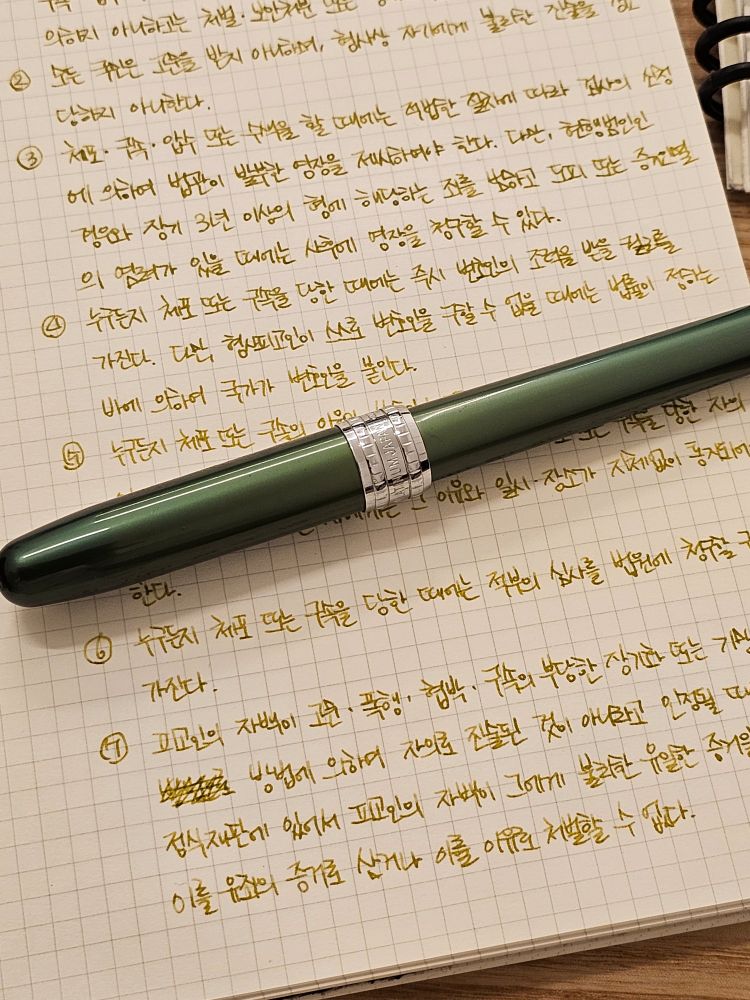 의하지 아니하고는 처벌·보안처분 또는
② 모든 국민은 고문을 받지 아니하며, 형사상 자기에게 불리한 진술을 강요
당하지 아니한다.
③ 체포·구속·압수 또는 수색을 할 때에는 적법한 절차에 따라 검사의 신청
에 의하여 법관이 발부한 영장을 제시하여야 한다. 다만, 현행범인인
경우와 장기 3년 이상의 형에 해당하는 죄를 범하고 도피 또는 증거인멸
의 염려가 있을 때에는 사후에 영장을 청구할 수 있다.
④ 누구든지 체포 또는 구속을 당한 때에는 즉시 변호인의 조력을 받을 권리를
가진다. 다만, 형사피고인이 스스로 변호인을 구할 수 없을 때에는 법률이 정하는
바에 의하여 국가가 변호인을 붙인다.
⑤ 누구든지 체포 또는 구속의 이유와 또는 구속을 당한 자의
이유와 일시·장소가 지체없이 통지되어
한다.
⑥ 누구든지 체포 또는 구속을 당한 때에는 적부의 심사를 법원에 청구할
가진다.
⑦ 피고인의 자백이 고문·폭행·협박·구속의 부당한 장기화 또는 기망
방법에 의하여 자의로 진술된 것이 아니라고 인정될 때
정식재판에 있어서 피고인의 자백이 그에게 불리한 유일한 증거일
이를 유죄의 증거로 삼거나 이를 이유로 처벌할 수 없다.